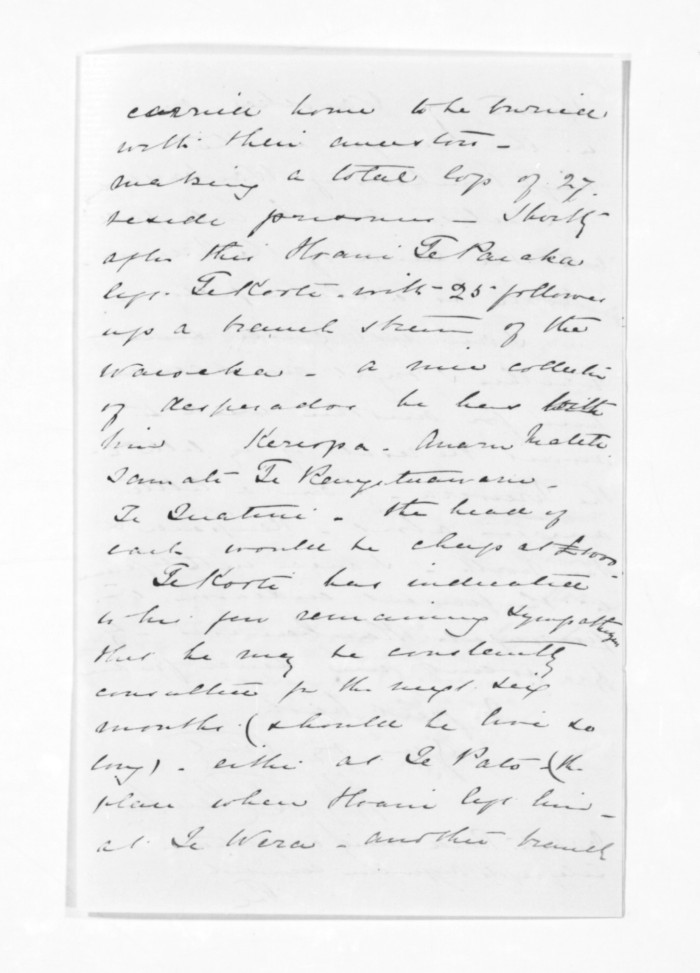 carried home to be buried
with their ancestors -
making a total loss of 27.
beside prisoners - Shortly
after this Hoani Te Paiaka
left Te Kooti - with 25 followers
up a branch stream of the
Waioeka - a nice collection
of desperados he has with
him Kereopa - Anaru Matete
Te
Te - the head of
each would be cheap at £1000 -
Te Kooti has indicated
to his few remaining sympathizers
that he may be constantly
consulted for the next six
months (should he live so
long) - either at Te Pato - (the
place where Hoani left him -
at Te Wera - another branch